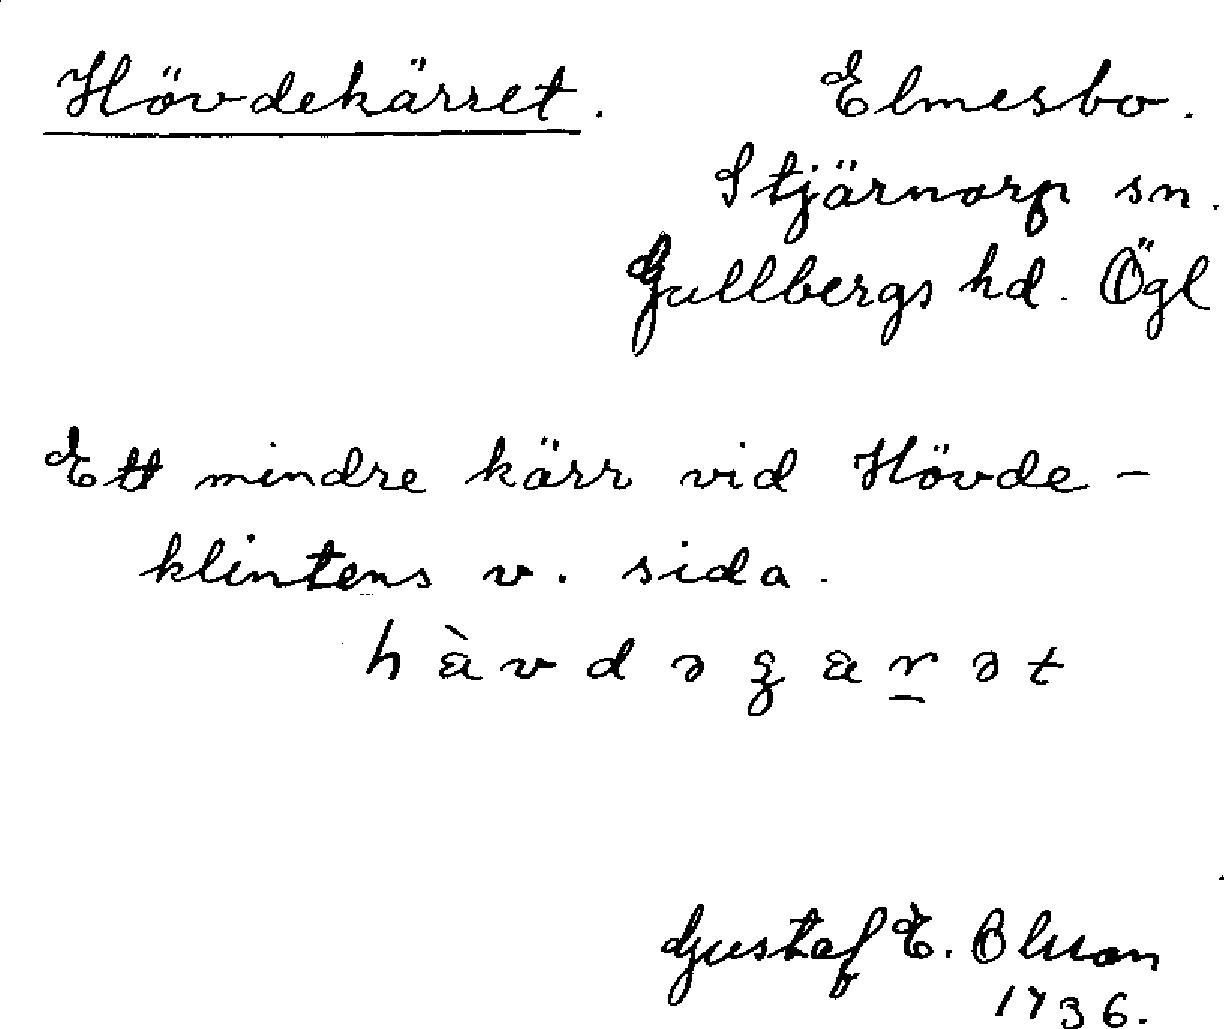 Hövdekärret. Elmesbo.
Stjärnorp sn.
Gullbergs hd. Ögl
Ett mindre kärr vid Hövde-
klintens v. sida.
Gustaf E. Olson
1936.